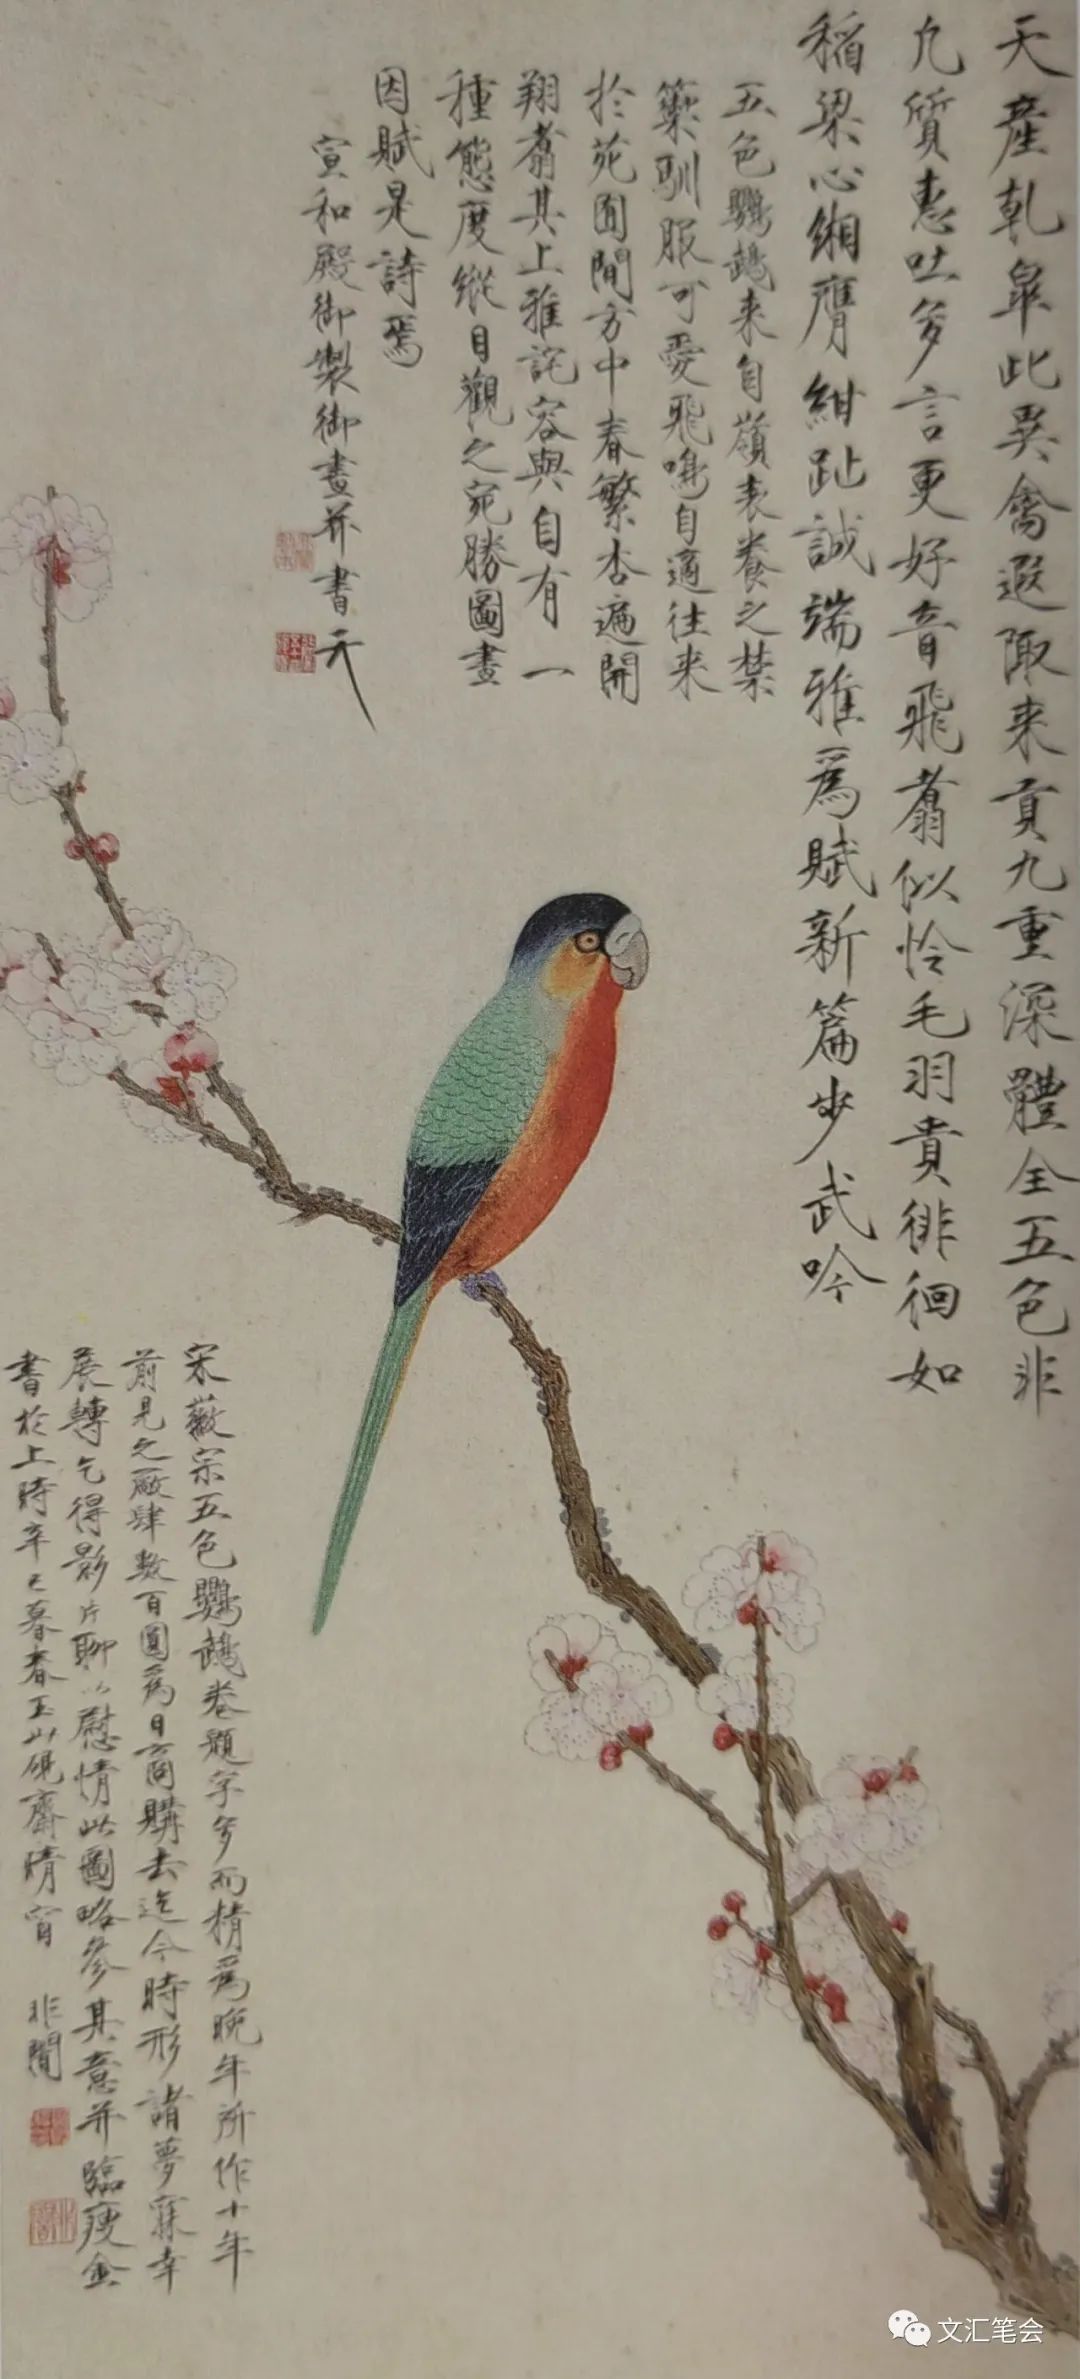 天產乹皐此異禽遐陬来貢九重深體全五色非
凡質惠吐多言更好音飛翥似怜毛羽貴徘徊如
稻粱心緗膺紺趾誠端雅爲賦新篇步武吟
五色鸚鵡来自嶺表養之禁
籞馴服可愛飛鳴自適往来
於苑囿間方中春繁杏遍開
翔翥其上雅詫容與自有一
種態度縱目觀之宛勝圖畫
因賦是詩焉
宣和殿御製御畫并書
宋徽宗五色鸚鵡卷題字多而精爲晚年所作十年
前見之厰肆數百圓爲日商購去迄今時形諸夢寐幸
展轉乞得影片聊以慰情此圖略參其意并臨瘦金
書於上時辛巳暮春玉山硯齋晴窗 非闇
文汇笔会